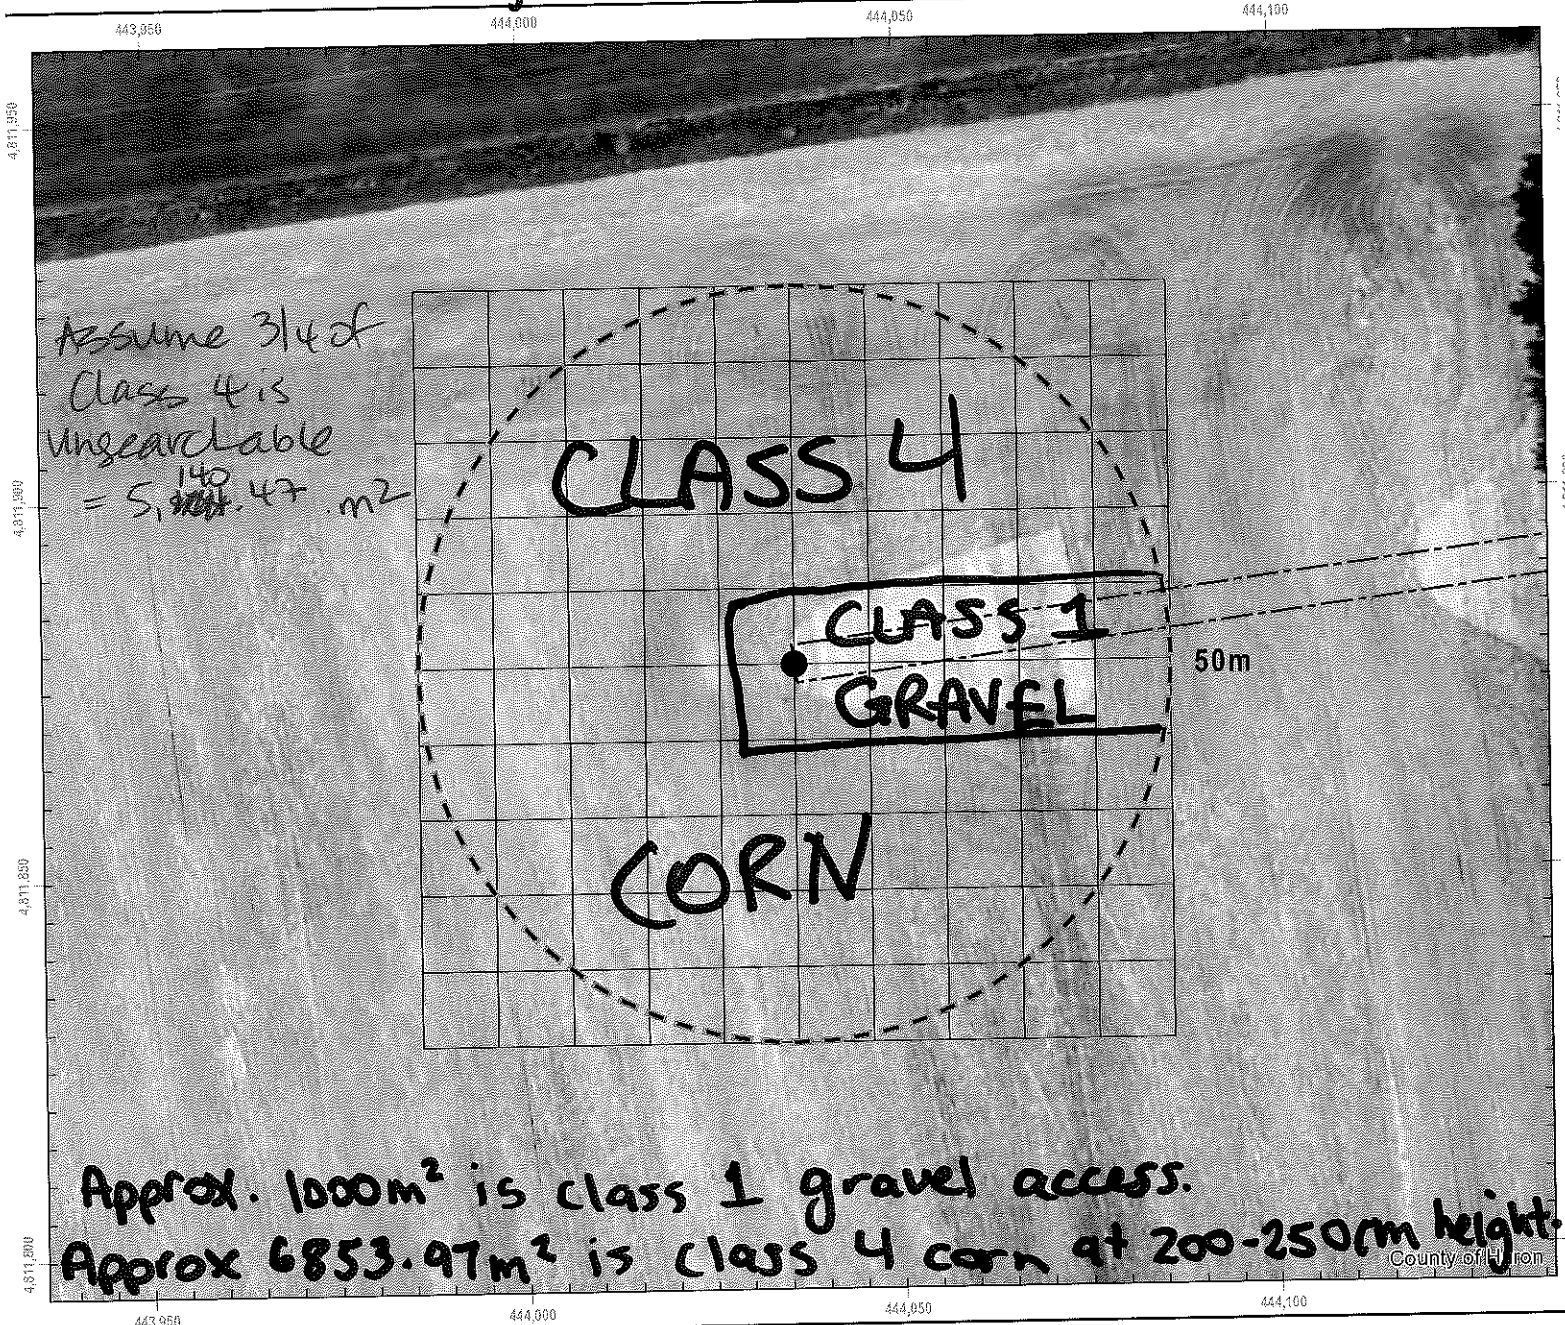 443,950
444,000
444,050
444,100
4,811,950
Assume 3/4 of
Class 4 is
unsearchable
140
= 5, .47 m²
4,811,900
CLASS 4
CLASS 1
GRAVEL
50m
CORN
4,811,850
Approx. 1000m² is class 1 gravel access.
Approx 6853.97m² is class 4 corn at 200-250cm height.
County of Huron
4,811,800
443,950
444,000
444,050
444,100